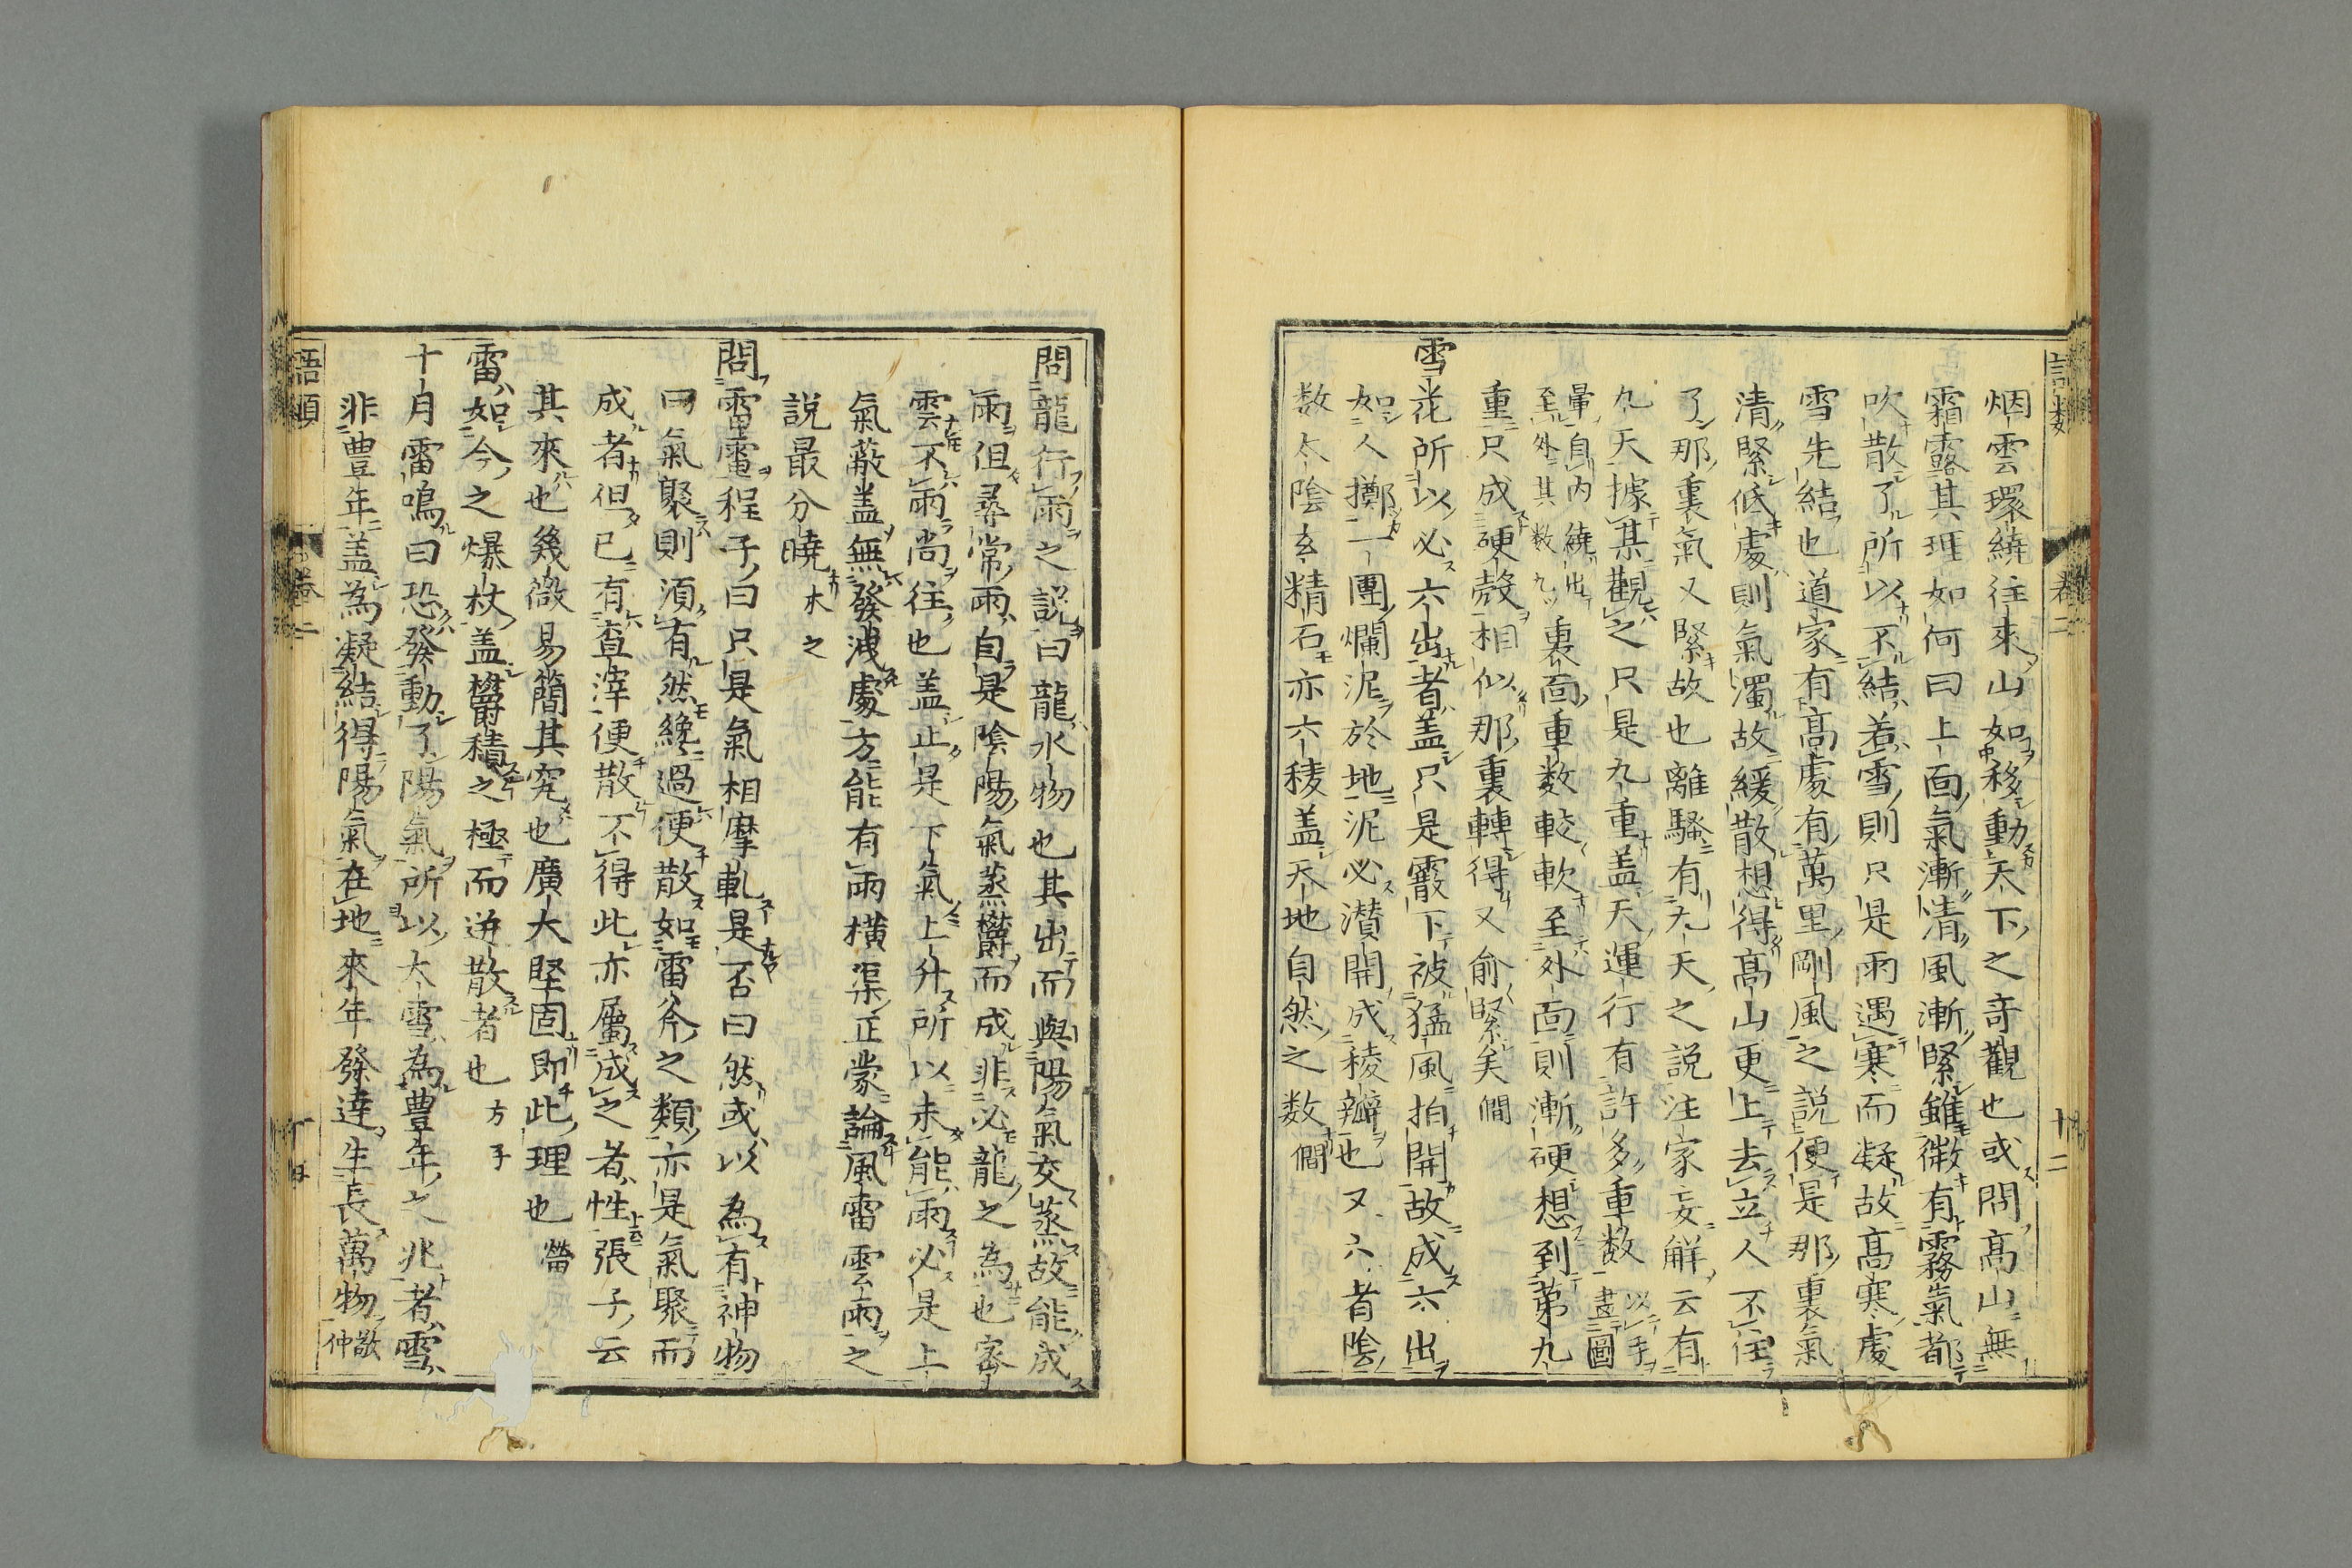 烟雲環繞往來山如移動天下之竒觀也或問高山無
霜露其理如何曰上面氣漸清風漸緊雖微有霧氣都
吹散了所以不結若雪則只是雨遇寒而凝故高寒處
雪先結也道家有高處有萬里剛風之說便是那裏氣
清緊低處則氣濁故緩散想得高山更上去立人不住
了那裏氣又緊故也離騷有九天之說注家妄解云有
九天據某觀之只是九重蓋天運行有許多重数以手畫圖
暈自内繞出至外其数九裏面重数較軟至外面則漸硬想到第九
重只成硬殻相似那裏轉得又愈緊矣僩
雪花所以必六出者蓋只是霰下被猛風拍開故成六出
如人擲一團爛泥於地泥必灒開成稜瓣也又六者陰
数太陰玄精石亦六稜蓋天地自然之数僩
問龍行雨之說曰龍水物也其出而與陽氣交蒸故能成
雨但尋常雨自是陰陽氣蒸欝而成非必龍之為也密
雲不雨尚往也蓋止是下氣上升所以未能雨必是上
氣蔽蓋無發洩處方能有雨横渠正蒙論風雷雲雨之
說最分曉木之
問雷電程子曰只是氣相摩軋是否曰然或以為有神物
曰氣聚則須有然纔過便散如雷斧之類亦是氣聚而
成者但已有査滓便散不得此亦屬成之者性張子云
其來也幾微易簡其究也廣大堅固即此理也㽦
雷如今之爆杖蓋欝積之極而迸散者也方子
十月雷鳴曰恐發動了陽氣所以大雪為豊年之兆者雪
非豊年蓋為凝結得陽氣在地來年發達生長萬物敬仲
語類 卷二